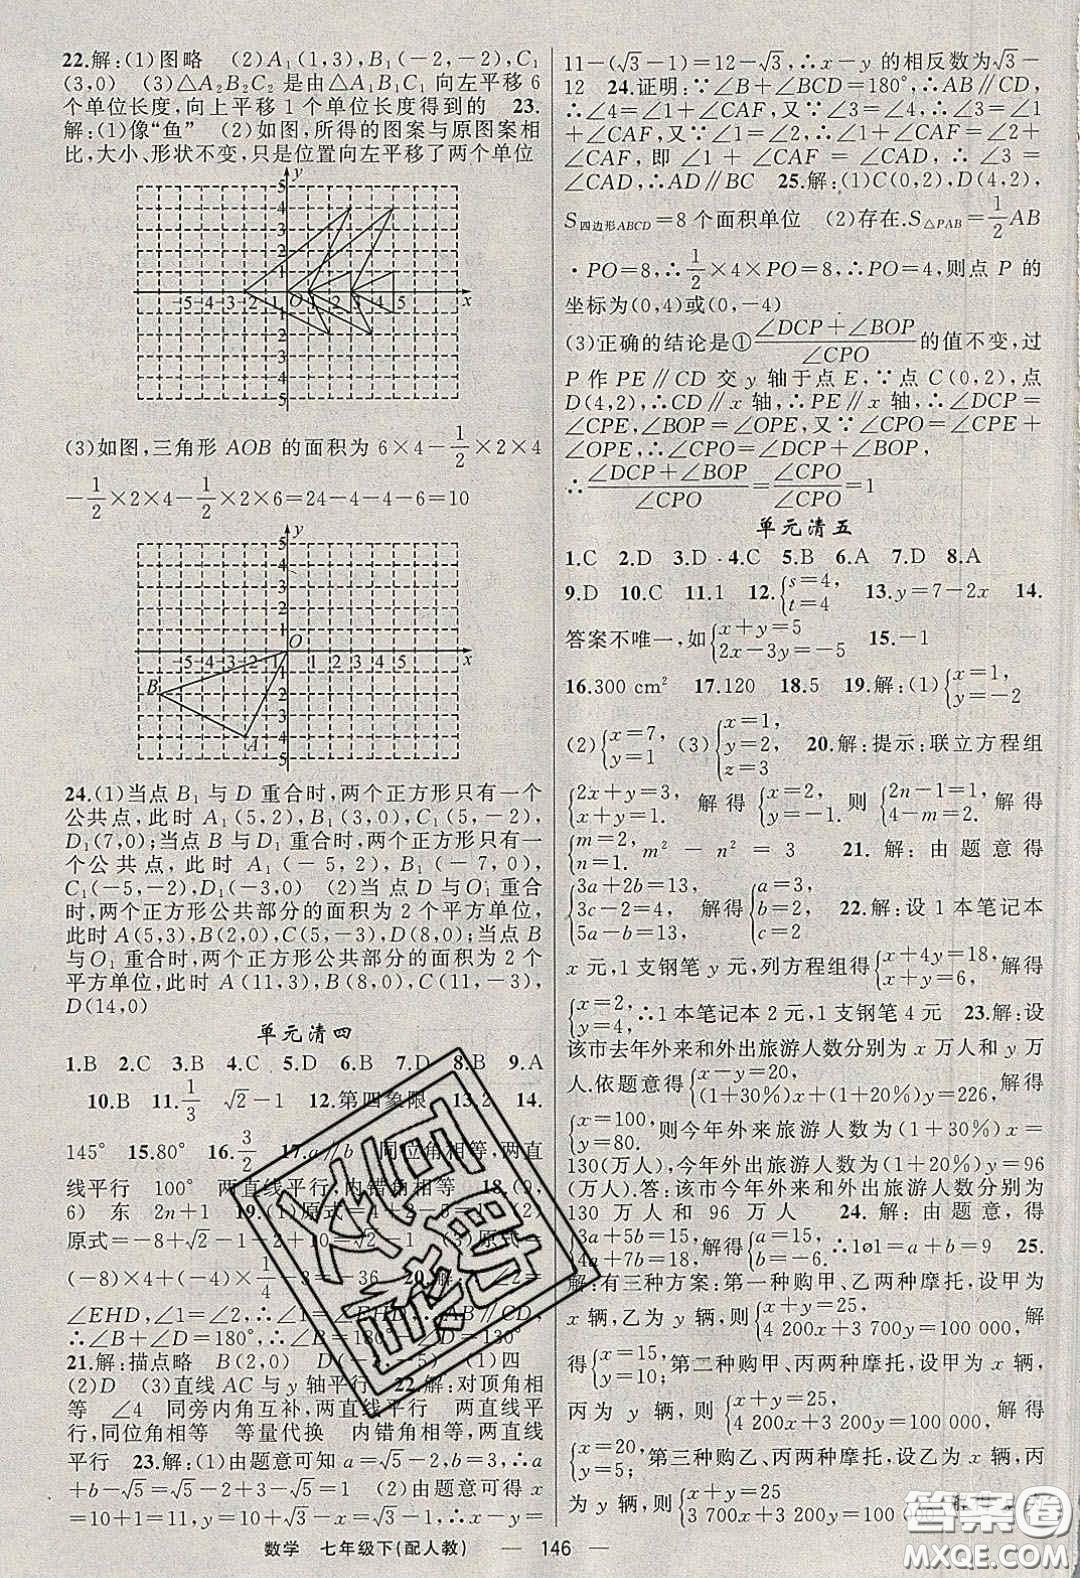 22.解:(1)图略 (2)A₁(1,3),B₁(-2,-2),C₁
(3,0) (3)△A₂B₂C₂是由△A₁B₁C₁向左平移6
个单位长度,向上平移1个单位长度得到的 23.
解:(1)像“鱼” (2)如图,所得的图案与原图案相
比,大小、形状不变,只是位置向左平移了两个单位
(3)如图,三角形AOB的面积为6×4-1/2×2×4
-1/2×2×4-1/2×2×6=24-4-4-6=10
24.(1)当点B₁与D重合时,两个正方形只有一个
公共点,此时A₁(5,2),B₁(3,0),C₁(5,-2),
D₁(7,0);当点B与D₁重合时,两个正方形只有
一个公共点,此时A₁(-5,2),B₁(-7,0),
C₁(-5,-2),D₁(-3,0) (2)当点D与O₁重合
时,两个正方形公共部分的面积为2个平方单位,
此时A(5,3),B(2,0),C(5,-3),D(8,0);当点B
与O₁重合时,两个正方形公共部分的面积为2个
平方单位,此时A(11,3),B(8,0),C(11,-3),
D(14,0)
单元清四
1.B 2.C 3.B 4.C 5.D 6.B 7.D 8.B 9.A
10.B 11.1/3 √2-1 12.第四象限 13.2 14.
145° 15.80° 16.3/2 17.a∥b 同位角相等,两直
线平行 100° 两直线平行,内错角相等 18.(9,
6) 东 2n+1 19.(1)原式=4+2-5=1 (2)
原式=-8+√2-1-2+10=√2-1 (3)原式=
(-8)×4+(-4)×1/4-3=-36 20.解:∵∠1=
∠EHD,∠1=∠2,∴∠2=∠EHD,∴AB∥CD,
∴∠B+∠D=180°,∴∠B=180°-∠D=130°
21.解:描点略 B(2,0) D(-5) (1)四
(2)D (3)直线AC与y轴平行 22.解:对顶角相
等 ∠4 同旁内角互补,两直线平行 两直线平
行,同位角相等 等量代换 内错角相等,两直线
平行 23.解:(1)由题意可知a=√5-2,b=3,∴a
+b-√5=√5-2+3-√5=1 (2)由题意可得x
=10+1=11,y=√3+10-11=√3-1,∴x-y=
11-(√3-1)=12-√3,∴x-y的相反数为√3-
12 24.证明:∵∠B+∠BCD=180°,∴AB∥CD,
∴∠4=∠1+∠CAF,又∵∠3=∠4,∴∠3=∠1
+∠CAF,又∵∠1=∠2,∴∠1+∠CAF=∠2+
∠CAF,即∠1+∠CAF=∠CAD,∴∠3=
∠CAD,∴AD∥BC 25.解:(1)C(0,2),D(4,2),
S四边形ABCD=8个面积单位 (2)存在.S△PAB=1/2AB
·PO=8,∴1/2×4×PO=8,∴PO=4,则点P的
坐标为(0,4)或(0,-4)
(3)正确的结论是①(∠DCP+∠BOP)/∠CPO的值不变,过
P作PE∥CD交y轴于点E,∵点C(0,2),点
D(4,2),∴CD∥x轴,∴PE∥x轴,∴∠DCP=
∠CPE,∠BOP=∠OPE,又∵∠CPO=∠CPE+
∠OPE,∴∠CPO=∠DCP+∠BOP,
∴(∠DCP+∠BOP)/∠CPO=∠CPO/∠CPO=1
单元清五
1.C 2.D 3.D 4.C 5.B 6.A 7.D 8.A
9.D 10.C 11.1 12.{s=4, t=4 13.y=7-2x 14.
答案不唯一,如{x+y=5 2x-3y=-5 15.-1
16.300 cm² 17.120 18.5 19.解:(1){x=1, y=-2
(2){x=7, y=1 (3){x=1, y=2, z=3 20.解:提示:联立方程组
{2x+y=3, x+y=2. 解得{x=1, y=-1. 则{2n-1=1, 4-m=2.
{m=2, n=1. m²-n²=3 21.解:由题意得
{3a+2b=13, 3c-2=4, 5a-b=13, 解得{a=3, b=2, c=2 22.解:设1本笔记本
x元,1支钢笔y元,列方程组得{x+4y=18, x+y=6, 解得
{x=2, y=4. ∴1本笔记本2元,1支钢笔4元 23.解:设
该市去年外来和外出旅游人数分别为x万人和y万
人.依题意得{x-y=20, (1+30%)x+(1+20%)y=226, 解得
{x=100, y=80. 则今年外来旅游人数为(1+30%)x=
130(万人),今年外出旅游人数为(1+20%)y=96
(万人).答:该市今年外来和外出旅游人数分别为
130万人和96万人 24.解:由题意,得
{3a+5b=15, 4a+7b=18 解得{a=15, b=-6. ∴1ø1=a+b=9 25.
解:有三种方案:第一种购甲、乙两种摩托,设甲为
x辆,乙为y辆,则{x+y=25, 4 200x+3 700y=100 000, 解
得{x=15, y=10, 第二种购甲、丙两种摩托,设甲为x辆,
丙为y辆,则{x+y=25, 4 200x+3 200y=100 000, 解得
{x=20, y=5, 第三种购乙、丙两种摩托,设乙为x辆,丙
为y辆,则{x+y=25 3 700x+3 200y=100 000,
数学 七年级下(配人教) — 146 —
答案圈
MXQE.COM